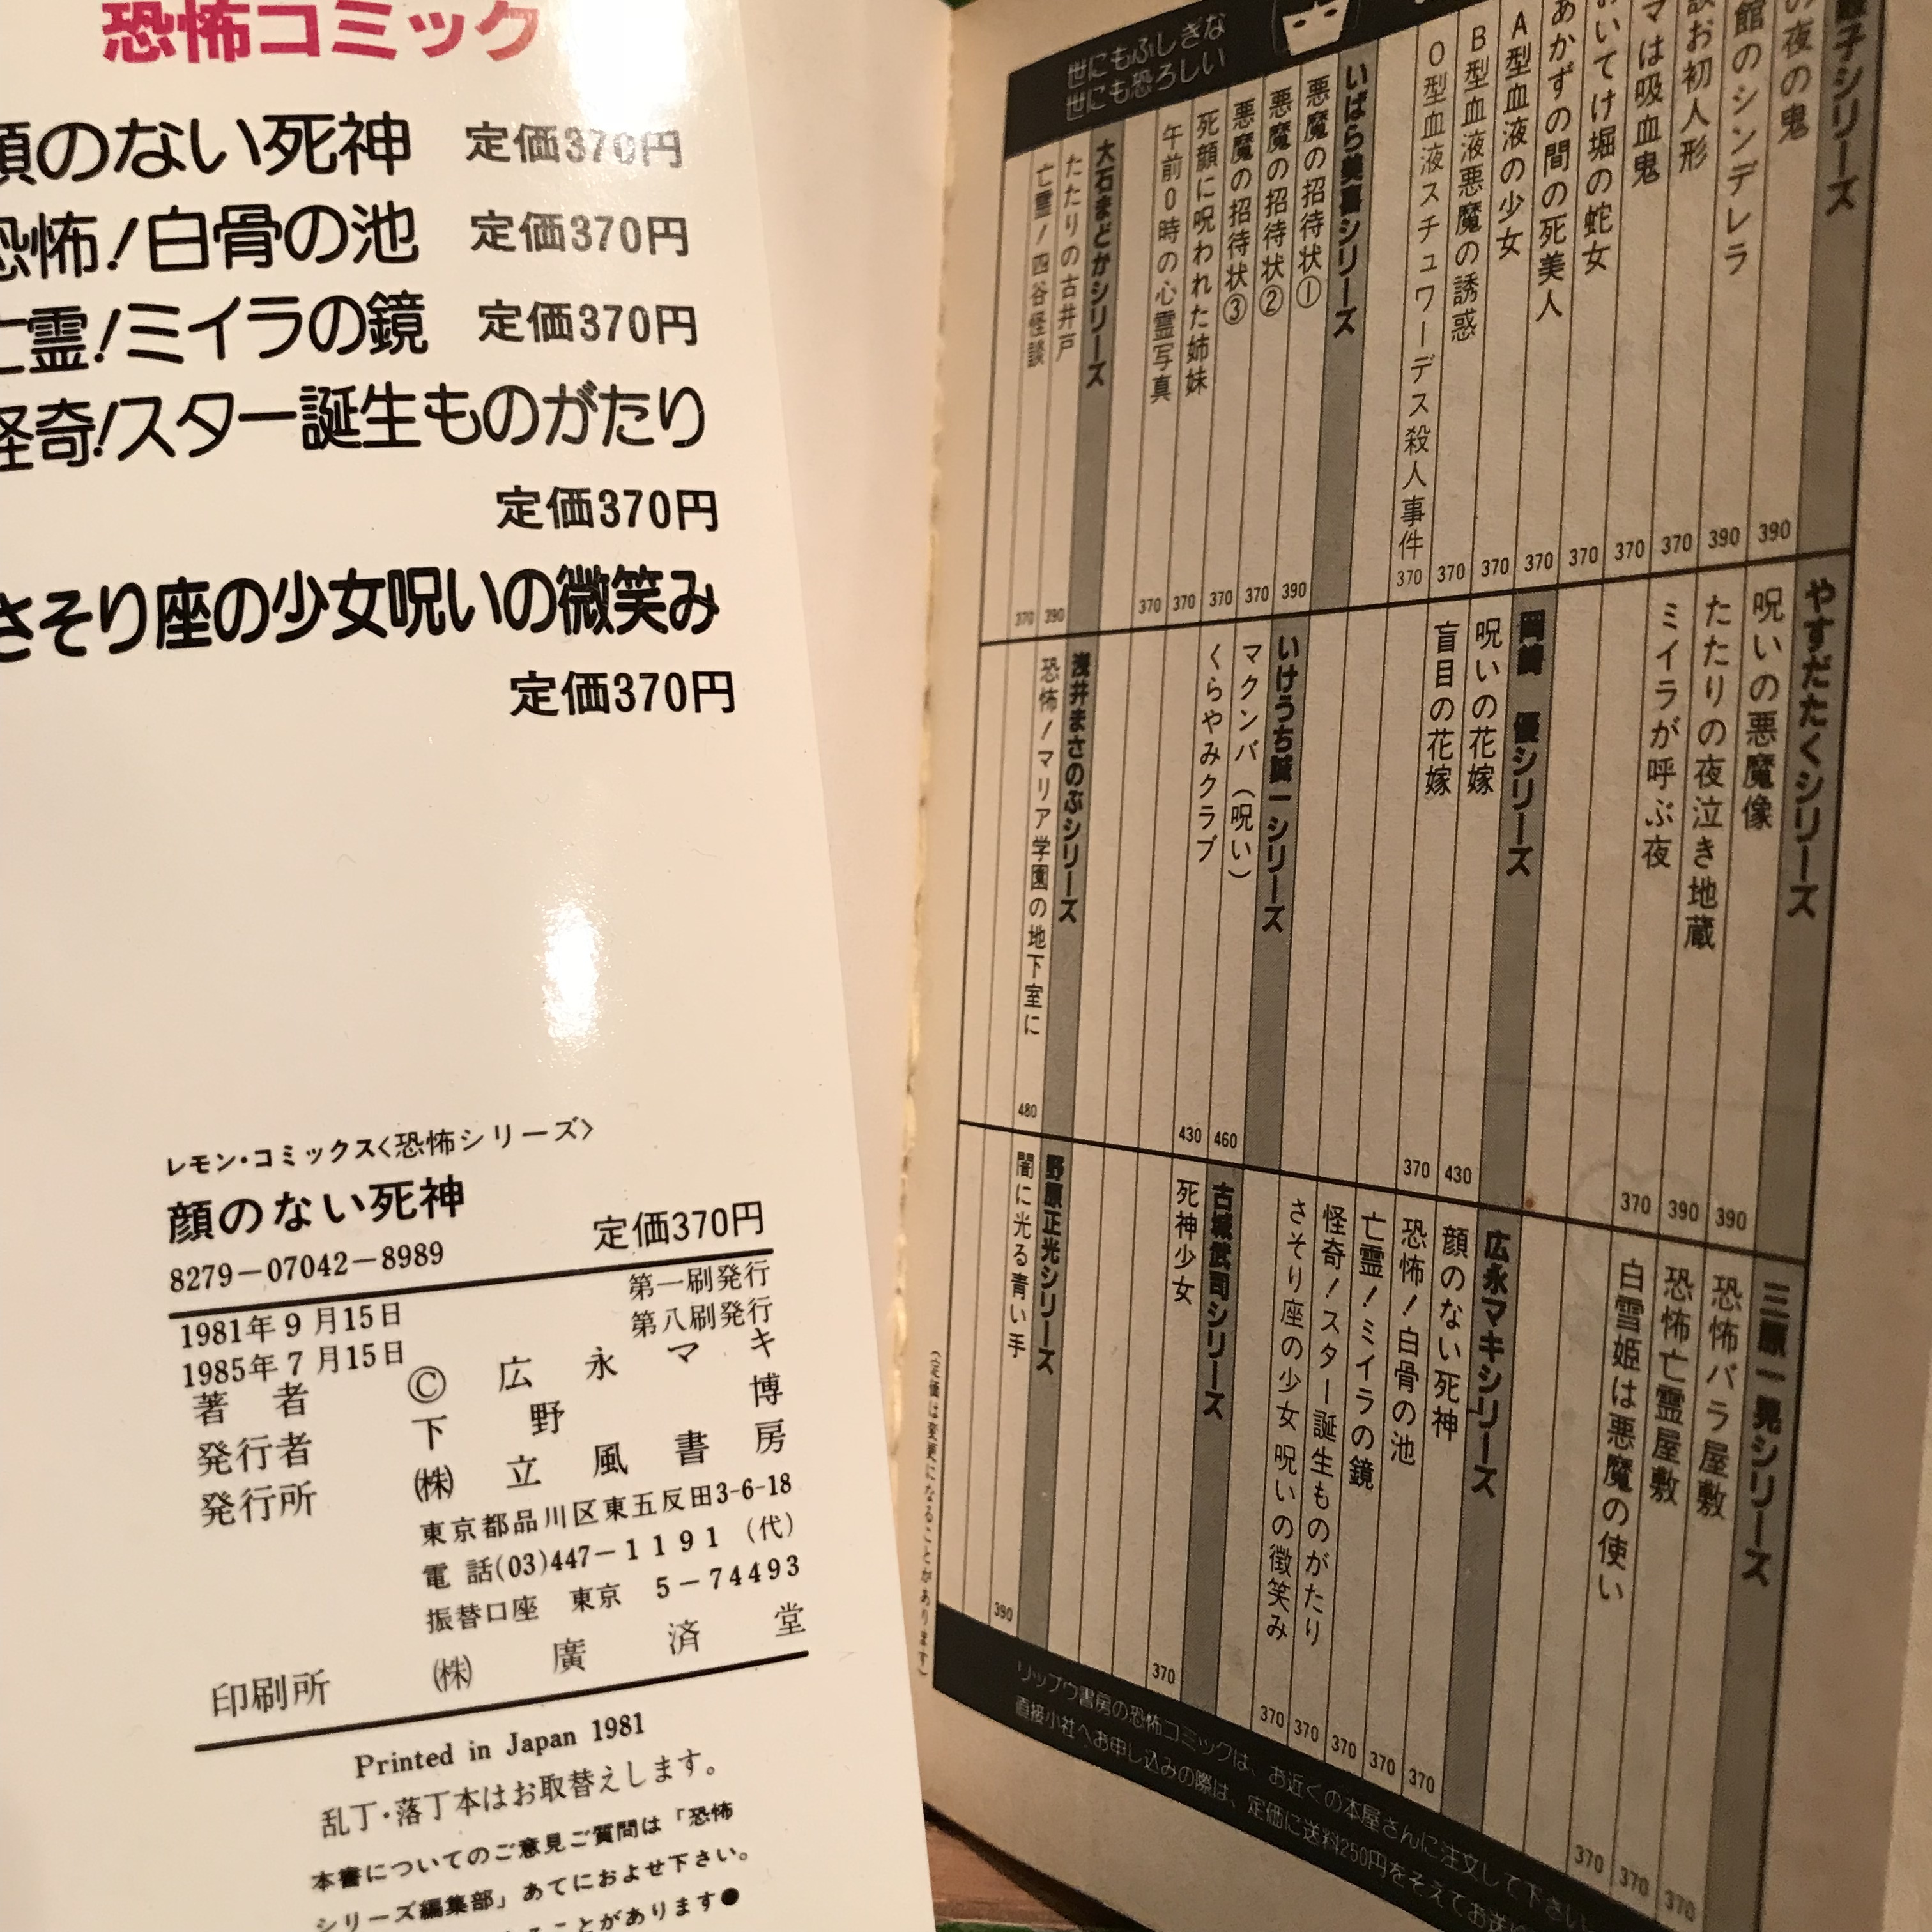 恐怖コミック
顔のない死神 定価370円
恐怖!白骨の池 定価370円
亡霊!ミイラの鏡 定価370円
怪奇!スター誕生ものがたり
定価370円
さそり座の少女呪いの微笑み
定価370円
レモン・コミックス〈恐怖シリーズ〉
顔のない死神
定価370円
8279-07042-8989
1981年9月15日 第一刷発行
1985年7月15日 第八刷発行
著者 © 広永マキ
発行者 下野 博
発行所 ㈱立風書房
東京都品川区東五反田3-6-18
電話(03)447-1191(代)
振替口座 東京 5-74493
印刷所 ㈱廣済堂
Printed in Japan 1981
乱丁・落丁本はお取替えします。
本書についてのご意見ご質問は「恐怖
シリーズ編集部」あてにおよせ下さい。
ることがあります●
世にもふしぎな
世にも恐ろしい
子シリーズ
の夜の鬼 390
館のシンデレラ 390
お初人形 370
マは吸血鬼 370
おいてけ堀の蛇女 370
あかずの間の死美人 370
A型血液の少女 370
B型血液悪魔の誘惑 370
O型血液スチュワーデス殺人事件 370
いばら美喜シリーズ
悪魔の招待状① 390
悪魔の招待状② 370
悪魔の招待状③ 370
死顔に呪われた姉妹 370
午前0時の心霊写真 370
大石まどかシリーズ
たたりの古井戸 390
亡霊!四谷怪談 370
やすだたくシリーズ
呪いの悪魔像 390
たたりの夜泣き地蔵 390
ミイラが呼ぶ夜 370
岡崎 優シリーズ
呪いの花嫁 430
盲目の花嫁 370
いけうち誠一シリーズ
マクンバ(呪い) 460
くらやみクラブ 430
浅井まさのぶシリーズ
恐怖!マリア学園の地下室に 480
三原一晃シリーズ
恐怖バラ屋敷 370
恐怖亡霊屋敷 370
白雪姫は悪魔の使い 370
広永マキシリーズ
顔のない死神 370
恐怖!白骨の池 370
亡霊!ミイラの鏡 370
怪奇!スター誕生ものがたり 370
さそり座の少女 呪いの微笑み 370
古城武司シリーズ
死神少女 370
野原正光シリーズ
闇に光る青い手 390
(定価は変更になることがあります)
リップウ書房の恐怖コミックは、お近くの本屋さんに注文して下さい
直接小社へお申し込みの際は、定価に送料250円をそえてお送り